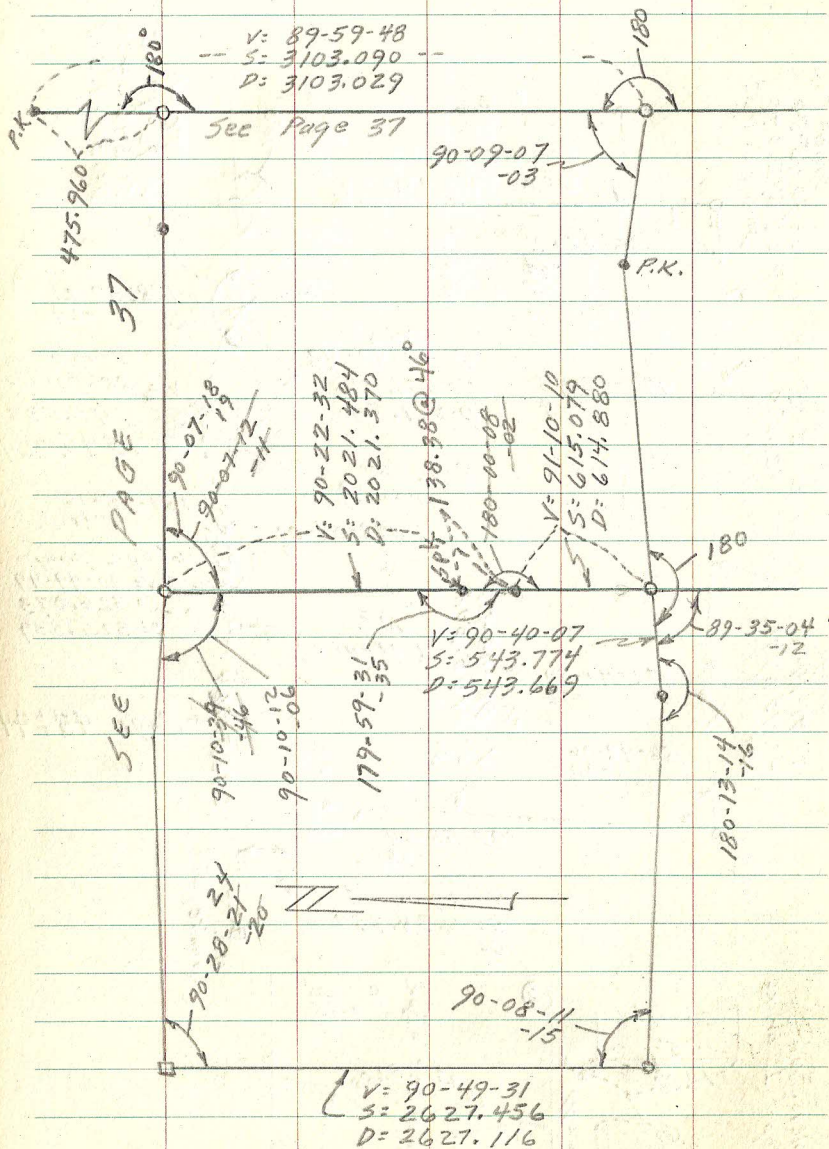 V: 89-59-48
S: 3103.090
D: 3103.029
180°
180
P.K.
See Page 37
475.960
90-09-07
-03
P.K.
SEE PAGE 37
90-07-18
19
90-07-12
-11
V= 90-22-32
S: 2021.484
D: 2021.370
138.38@46°
180-00-08
-02
V= 91-10-10
S= 615.079
D: 614.880
180
V= 90-40-07
S: 543.774
D= 543.669
89-35-04
-12
-46
90-10-12
-06
179-59-31
-35
180-13-14
-16
24
90-28-21
-20
90-08-11
-15
V= 90-49-31
S= 2627.456
D= 2627.116